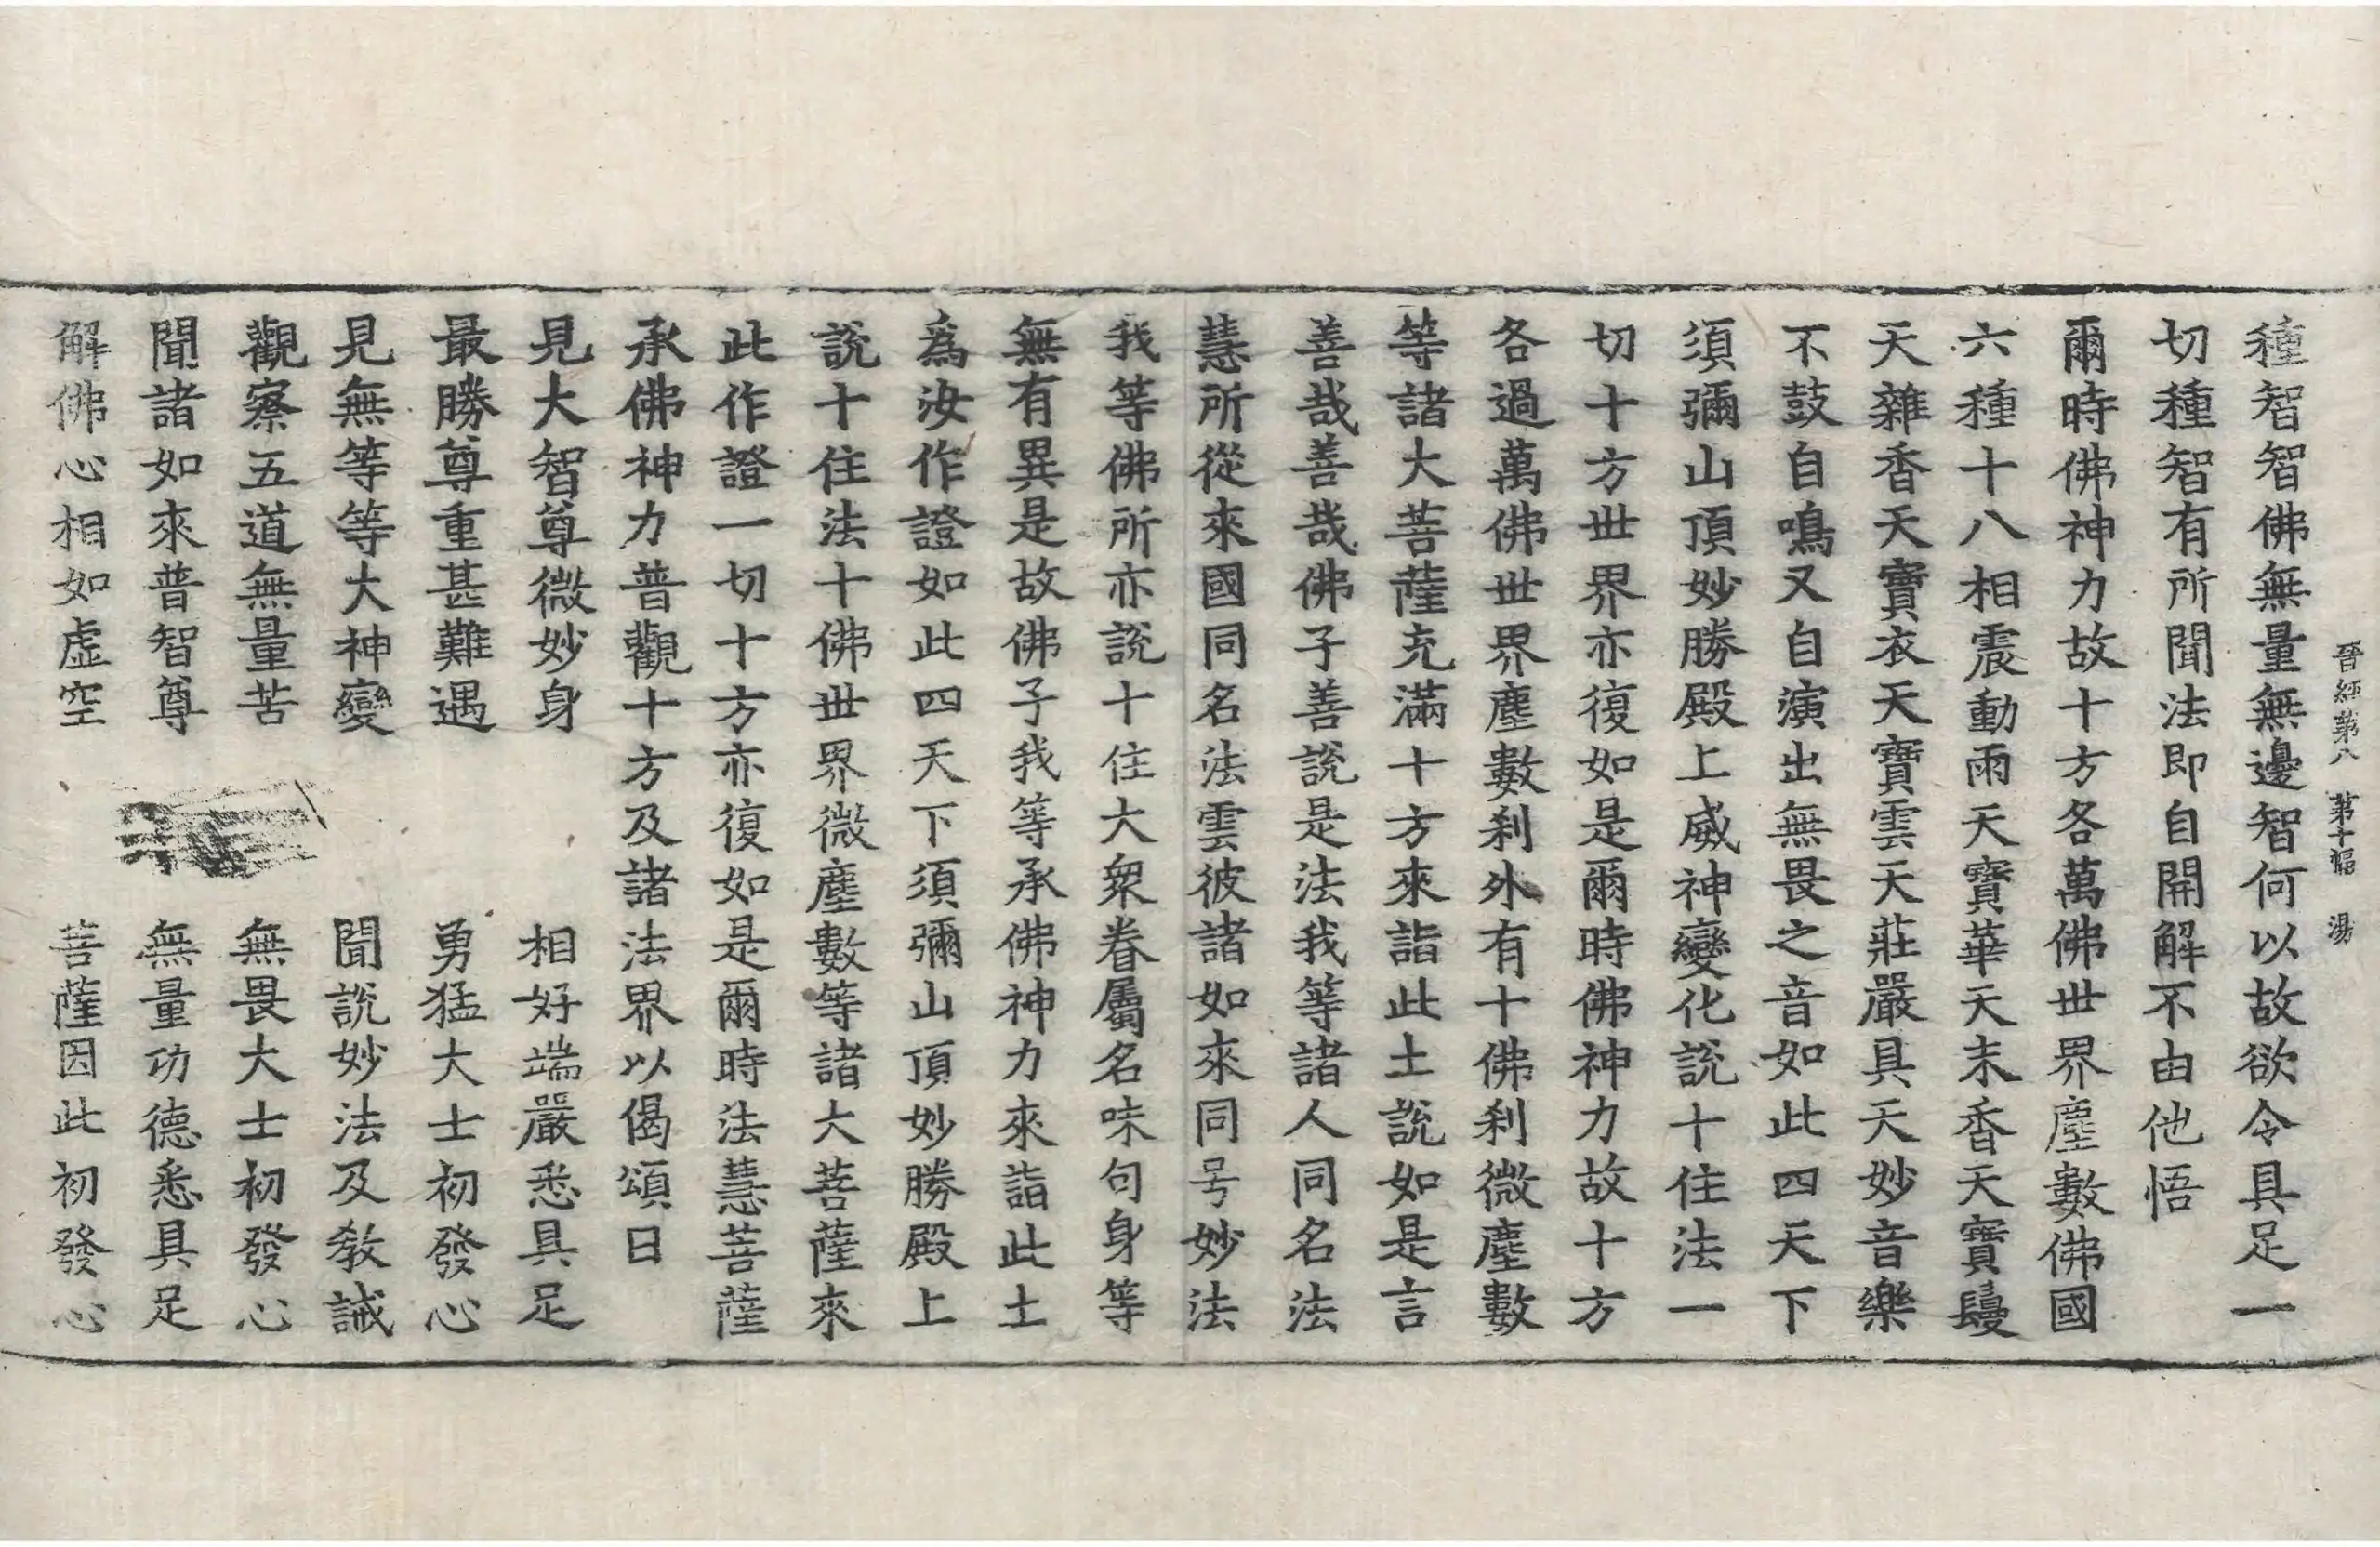 晉經第八　第十幅　湯
種智智佛無量無邊智何以故欲令具足一
切種智有所聞法即自開解不由他悟
爾時佛神力故十方各萬佛世界塵數佛國
六種十八相震動雨天寶華天末香天寶鬘
天雜香天寶衣天寶雲天莊嚴具天妙音樂
不鼓自鳴又自演出無畏之音如此四天下
須彌山頂妙勝殿上威神變化說十住法一
切十方世界亦復如是爾時佛神力故十方
各過萬佛世界塵數刹外有十佛刹微塵數
等諸大菩薩充滿十方來詣此土說如是言
善哉善哉佛子善說是法我等諸人同名法
慧所從來國同名法雲彼諸如來同号妙法
我等佛所亦說十住大衆眷屬名味句身等
無有異是故佛子我等承佛神力來詣此土
爲汝作證如此四天下須彌山頂妙勝殿上
說十住法十佛世界微塵數等諸大菩薩來
此作證一切十方亦復如是爾時法慧菩薩
承佛神力普觀十方及諸法界以偈頌曰
見大智尊微妙身　相好端嚴悉具足
最勝尊重甚難遇　勇猛大士初發心
見無等等大神變　聞說妙法及教誡
觀察五道無量苦　無畏大士初發心
聞諸如來普智尊　無量功德悉具足
解佛心相如虛空　菩薩因此初發心